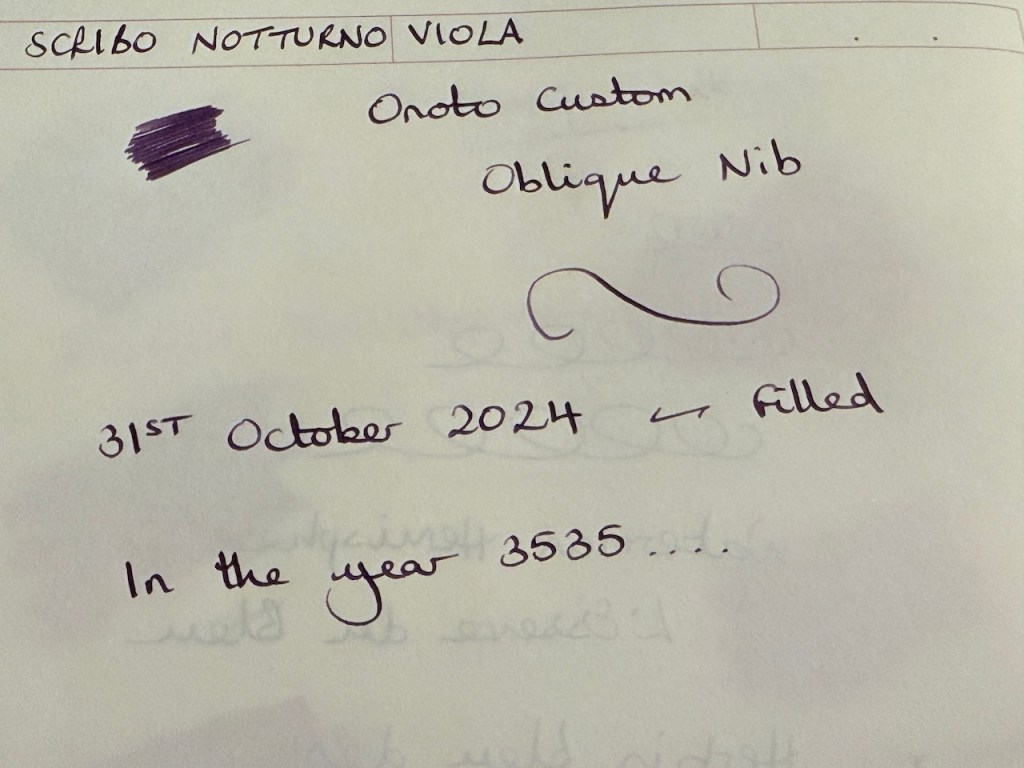 SCRIBO NOTTURNO VIOLA
Onoto Custom
Oblique Nib
31ST October 2024 ← Filled
In the year 3535 ....